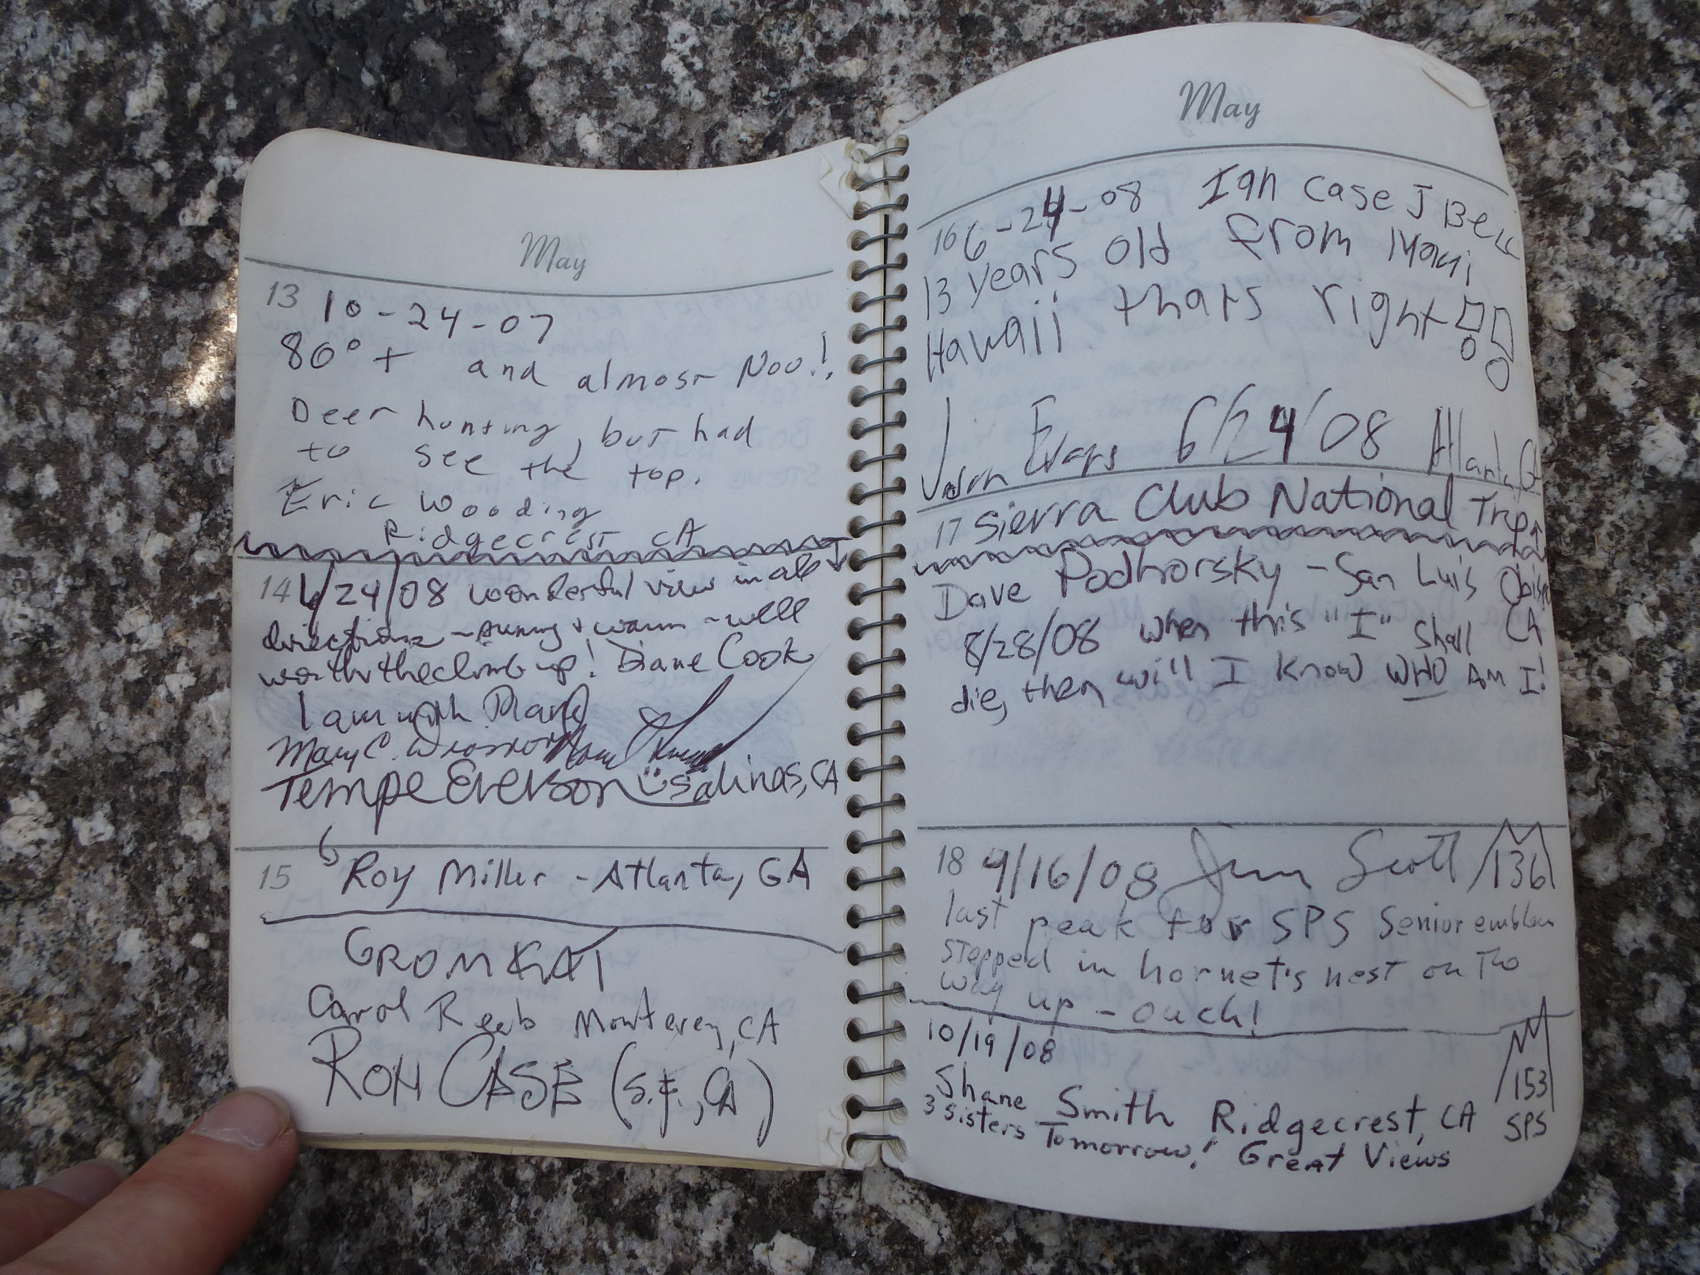 May
13 10-24-07
80° + and almost Nov!!
Deer hunting, but had
to see the top.
Eric Wooding
Ridgecrest CA
14 6/24/08 wonderful view in all
directions - sunny & warm - well
worth the climb up! Diane Cook
I am with
Mary C.
Tempe Everson Salinas, CA
15 Roy Miller - Atlanta, GA
GROMKAT
Carol Reeb Monterey, CA
RON CASE (S.F., CA)
May
16 6-24-08 Ian Case J Bell
13 years old from Maui
Hawaii thats right!!
Jason Evans 6/24/08 Atlanta, GA
17 Sierra Club National Trip
Dave Podhorsky - San Luis Obispo
8/28/08 when this "I" shall CA
die, then will I know WHO Am I!
18 9/16/08 Jim Scott 136
last peak for SPS Senior emblem
stepped in hornet's nest on the
way up - ouch!
10/19/08
Shane Smith Ridgecrest, CA 153
3 Sisters Tomorrow! Great Views SPS